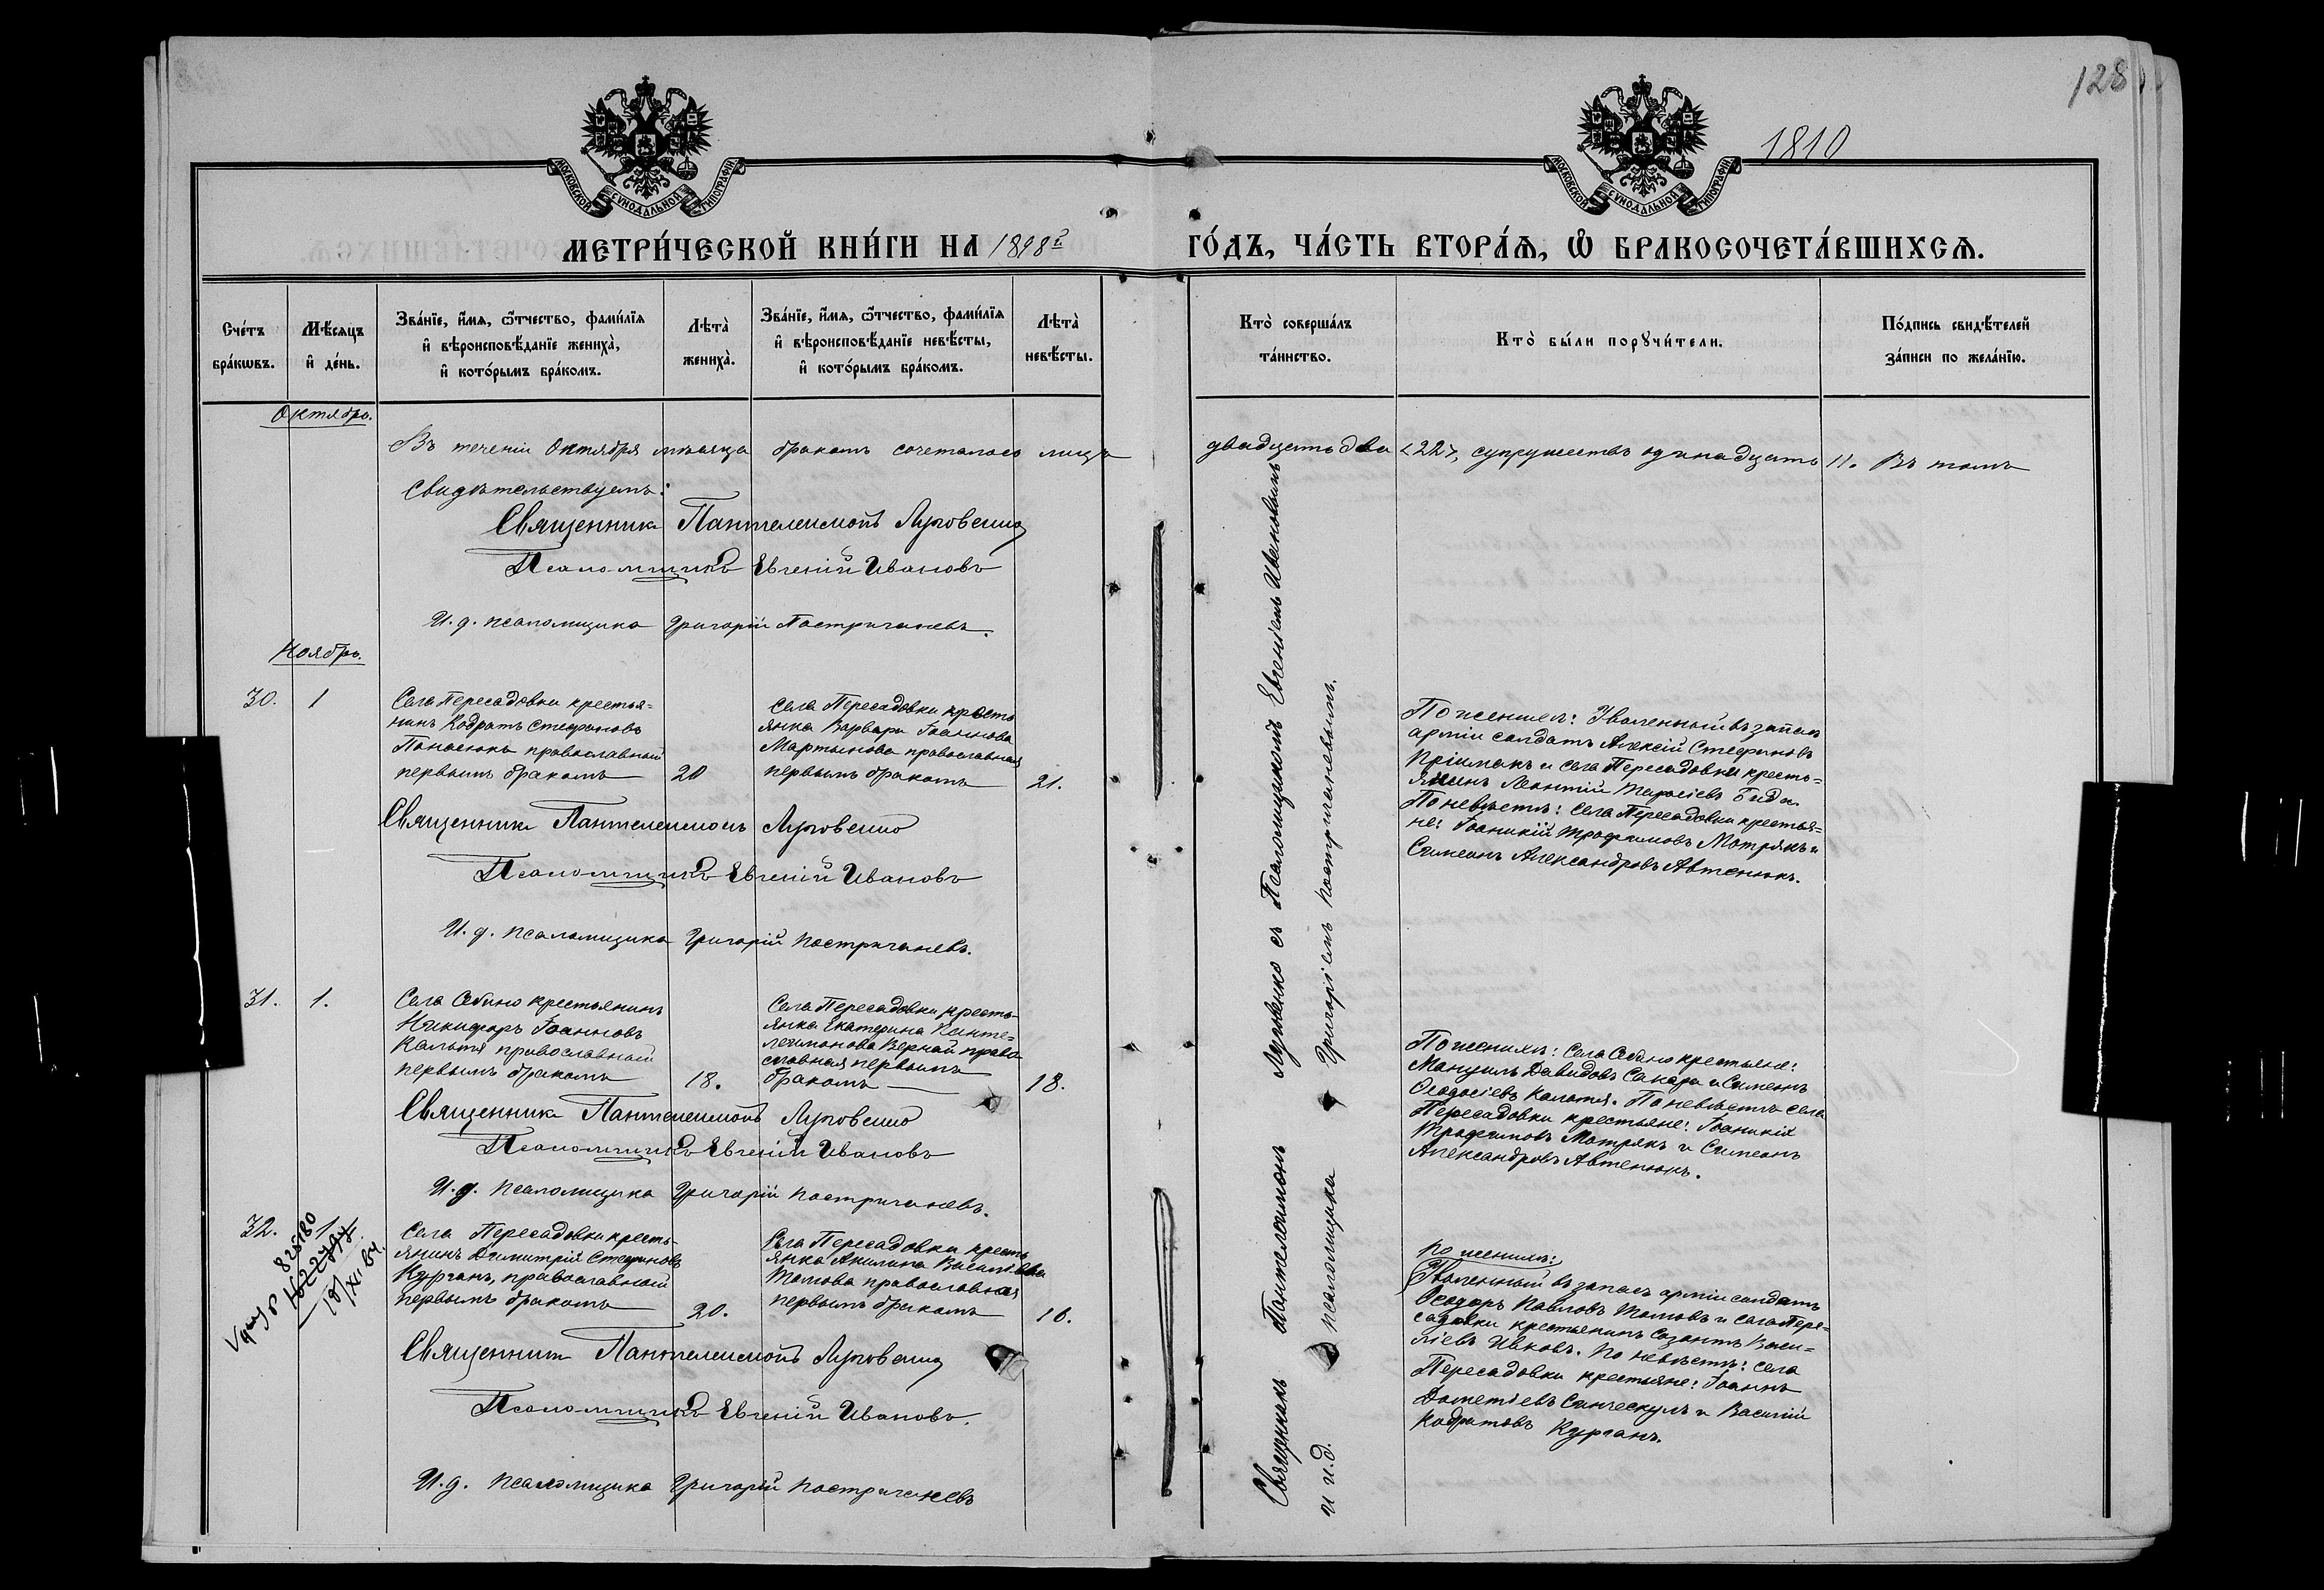 128
1810
МОСКОВСКОЙ СѴНОДАЛЬНОЙ ТИПОГРАФІИ
МОСКОВСКОЙ СѴНОДАЛЬНОЙ ТИПОГРАФІИ
МЕТРИ́ЧЕСКОЙ КНИ́ГИ НА 1898й
ГО́ДЪ, ЧА́СТЬ ВТОРА́Ѧ, Ѽ БРАКОСОЧЕТА́ВШИХСѦ.
Сче́тъ бра́кѡвъ.
Мѣ́сѧцъ и҆ де́нь.
Зва́нїе, и҆́мѧ, ѻ҆́тчество, фами́лїѧ
и҆ вѣроисповѣ́данїе жениха̀,
и҆ кото́рымъ бра́комъ.
Лѣта̀ жениха̀.
Зва́нїе, и҆́мѧ, ѻ҆́тчество, фами́лїѧ
и҆ вѣроисповѣ́данїе невѣ́сты,
и҆ кото́рымъ бра́комъ.
Лѣта̀ невѣ́сты.
Кто̀ соверша́лъ та́инство.
Кто̀ бы́ли порꙋчи́тели.
По́дпись свидѣ́телей
за́писи по жела́нїю.
Октябрь.
Въ теченіи Октября мѣсяца бракомъ сочеталось лицъ двадцать два <22>, супружествъ одинадцать 11. Въ томъ
свидѣтельствуемъ:
Священникъ Пантелеимонъ Луговенко
Псаломщикъ Евгеній Ивановъ
И. д. псаломщика Григорій Постригачевъ.
Ноябрь.
30. 1
Села Пересадовки крестья=
нинъ Кодратъ Стефановъ
Панасюкъ православный
первымъ бракомъ 20
Села Пересадовки кресть
янка Варвара Іоаннова
Мартынова православная
первымъ бракомъ 21.
По женихѣ: Уволенный въ запасъ
арміи солдатъ Алексій Стефановъ
Пріймакъ и села Пересадовки кресть=
янинъ Леонтій Тарасіевъ Бида.
По невѣстѣ: села Пересадовки крестья=
не: Іоаникій Трофимовъ Мотрякъ и
Симеонъ Александровъ Автенюкъ.
Священникъ Пантелеимонъ Луговенко
Псаломщикъ Евгеній Ивановъ
И. д. псаломщика Григорій Постригачевъ.
31. 1.
Села Себино крестьянинъ
Никифоръ Іоанновъ
Калатя православный
первымъ бракомъ 18.
Села Пересадовки кресть-
янка Екатерина Панте=
леимонова Верная право
славная первымъ
бракомъ 18.
По женихѣ: Села Себино крестьяне:
Мануилъ Давидовъ Сакара и Симеонъ
Ѳеодосіевъ Калатя. По невѣстѣ села
Пересадовки крестьяне: Іоаникій
Трофимовъ Мотрякъ и Симеонъ
Александровъ Автенюкъ.
Священникъ Пантелеимонъ Луговенко
Псаломщикъ Евгеній Ивановъ
И. д. псаломщика Григорій Постригачевъ.
32. 1.
Села Пересадовки кресть-
янинъ Димитрій Стефановъ
Курганъ, православный
первымъ бракомъ 20.
Села Пересадовки кресть
янка Акилина Василіева
Томова православная
первымъ бракомъ 16.
По женихѣ:
Уволенный въ запасъ арміи солдатъ
Ѳеодоръ Павловъ Томовъ и села Пере=
садовки крестьянинъ Созонтъ Васи=
ліевъ Ивковъ. По невѣстѣ: села
Пересадовки крестьяне: Іоаннъ
Дометіевъ Санческулъ и Василій
Кодратовъ Курганъ.
Священникъ Пантелеимонъ Луговенко
Псаломщикъ Евгеній Ивановъ.
И. д. псаломщика Григорій Постригачевъ
Священникъ Пантелеимонъ Луговенко съ Псаломщикомъ Евгеніемъ Ивановымъ
и и.д. псаломщика Григоріемъ Постригачевымъ.